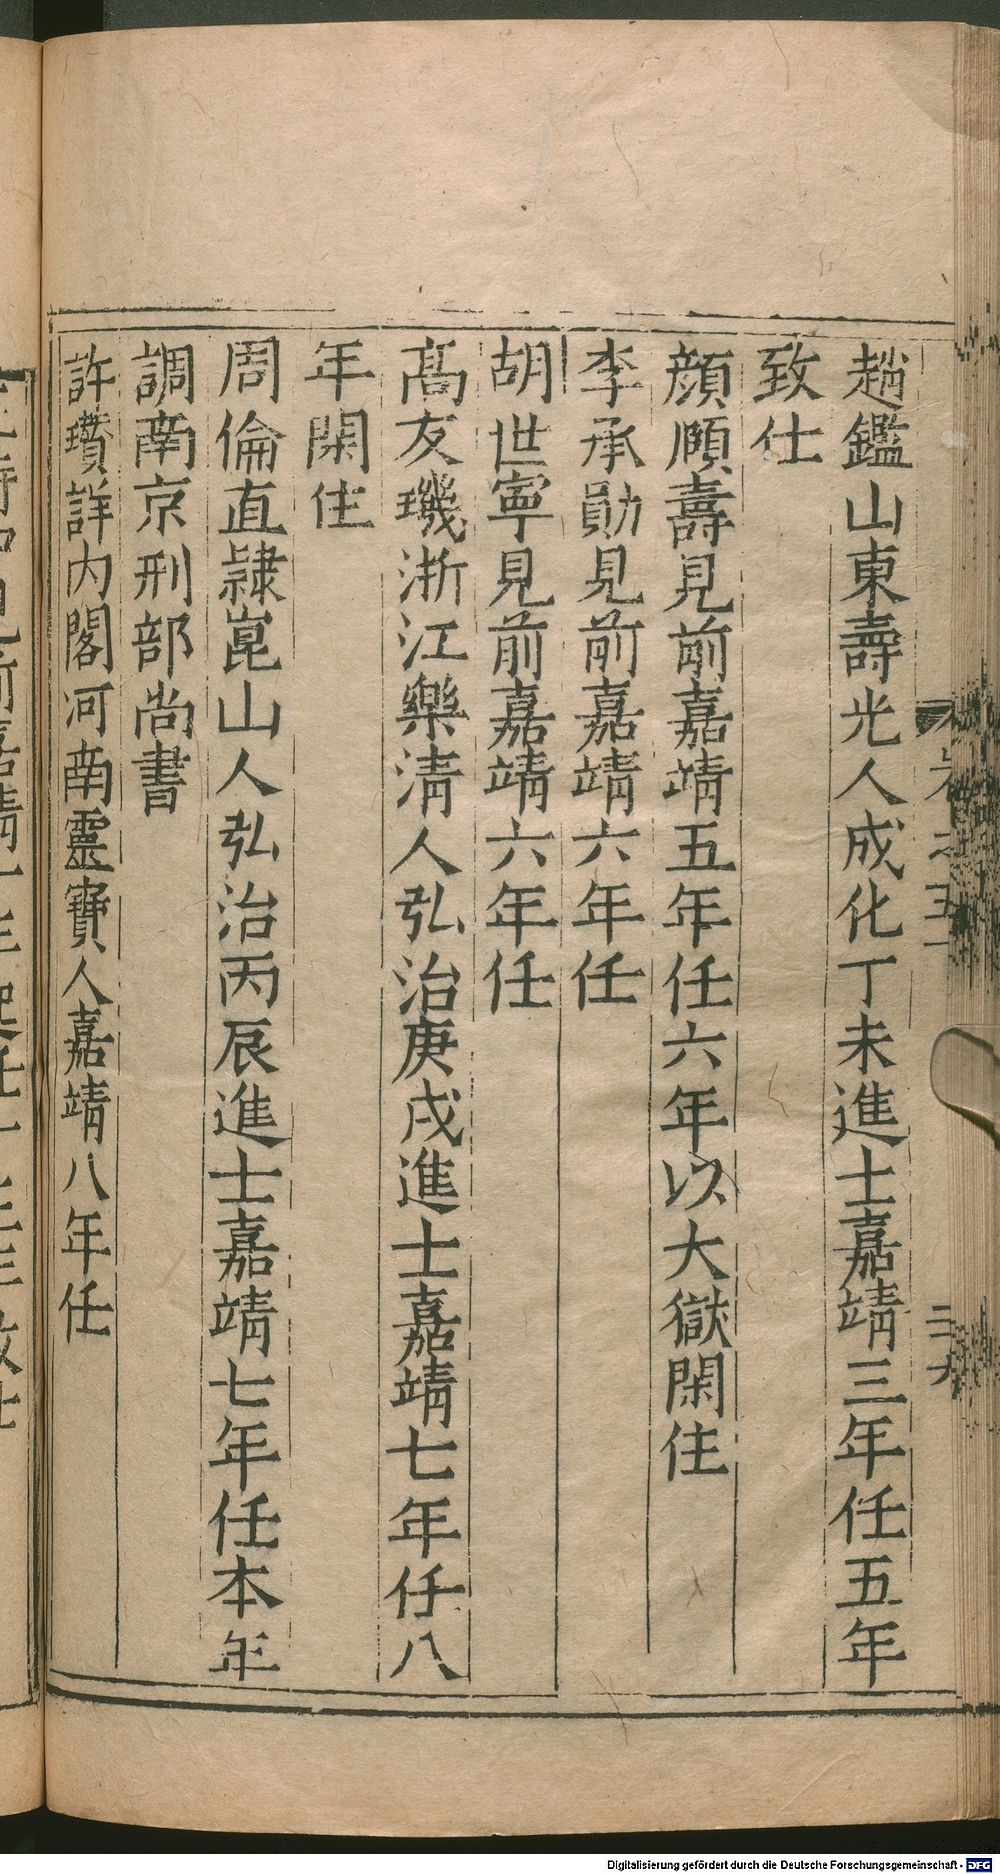 趙鑑山東壽光人成化丁未進士嘉靖三年任五年
致仕
顔頤壽見前嘉靖五年任六年以大獄閑住
李承勛見前嘉靖六年任
胡世寧見前嘉靖六年任
髙友璣浙江樂淸人弘治庚戌進士嘉靖七年任八
年閑住
周倫直隷崑山人弘治丙辰進士嘉靖七年任本年
調南京刑部尚書
許瓚詳內閣河南靈寶人嘉靖八年任
Digitalisierung gefördert durch die Deutsche Forschungsgemeinschaft - DFG